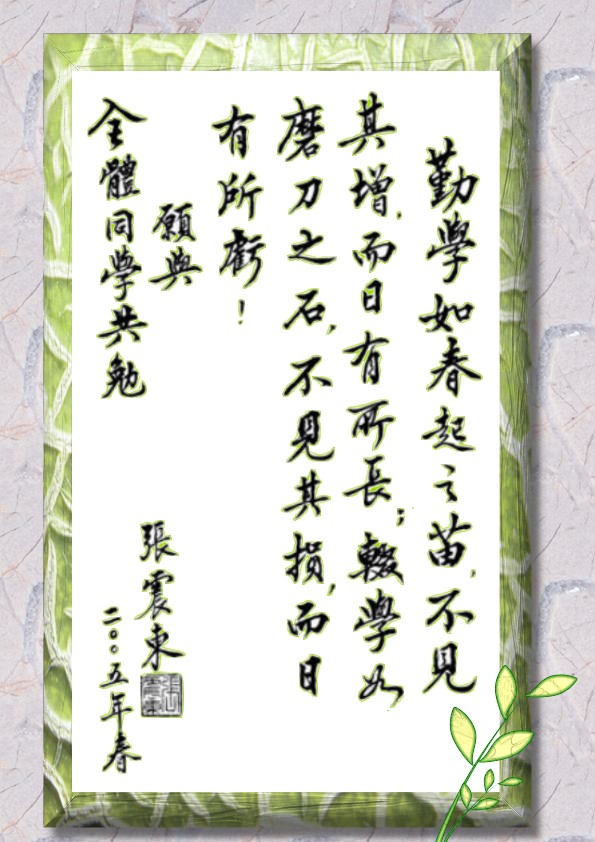 勤學如春起之苗，不見
其增，而日有所長；輟學如
磨刀之石，不見其損，而日
有所虧！
願與
全體同學共勉
張震東
二〇〇五年春